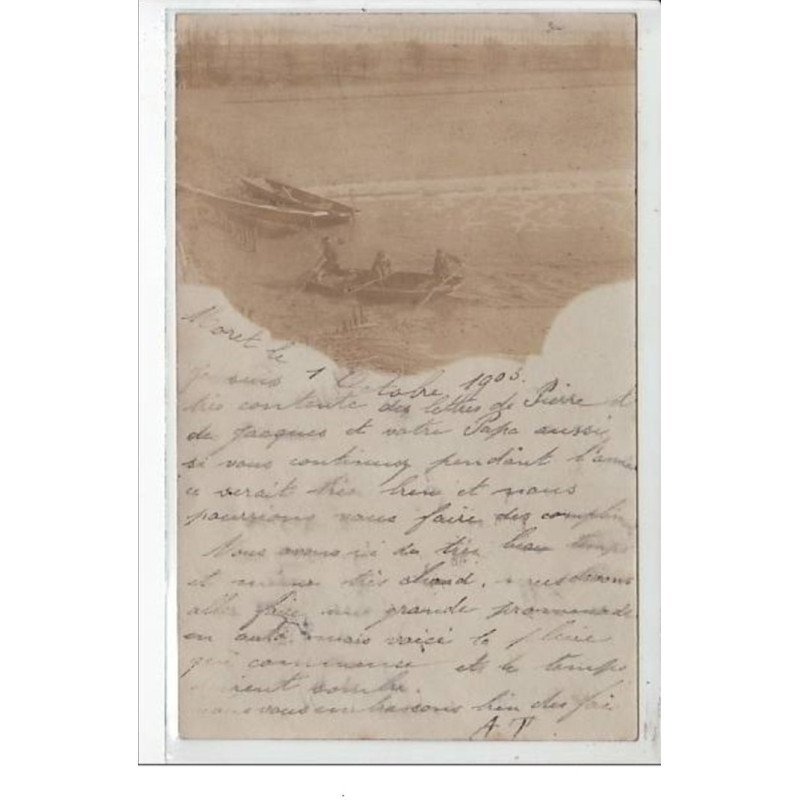 Moret le
1 Octobre 1903.
Je suis
très contente des lettres de Pierre et
de Jacques et votre Papa aussi,
si vous continuez pendant l'année
ce serait très bien et nous
pourrions vous faire des complim
Nous avons ici du très beau temps
et même très chaud, nous devons
aller faire une grande promenade
en auto mais voici la pluie
qui commence et le temps
devient sombre.
nous vous embrassons bien des fois
A T